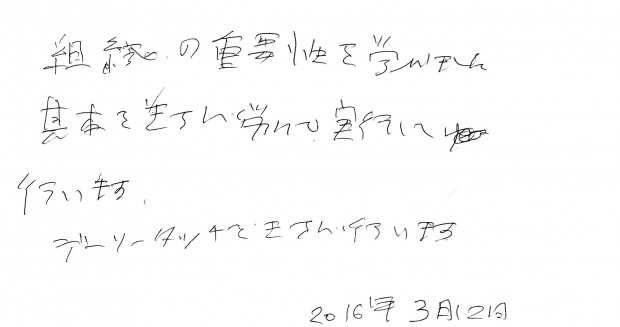 組織の重要性を学びました
基本をきちん学んで実行して
行います。
デーリータッチで行います
2016年3月12日